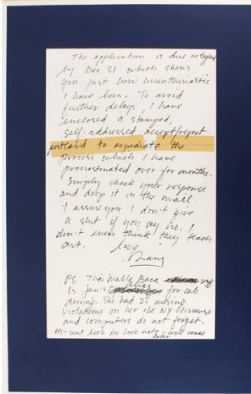 The application is due in
by Dec 31 which shows
you just how unenthusiastic
I have been. To avoid
further delays, I have
enclosed a stamped,
self-addressed accept/reject
postcard to expedite the
process which I have
procrastinated over for months.
Simply check your response
and drop it in the mail
I assure you I don't give
a shit if you say no. I
don't even think they teach
art.
love,
PS. This Mabla Baca song
is Jan's alias for cab
driving. She had 21 moving
violations on her old NY license
and computers do not forget.